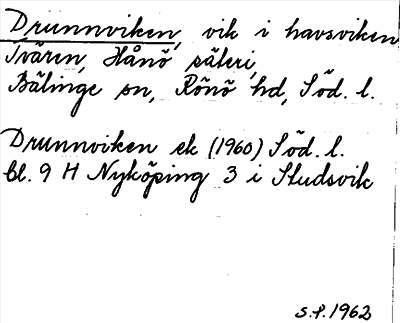 Drunnviken, vik i havsviken
Tvären, Hånö säteri,
Bälinge sn, Rönö hd, Söd. l.
Drunnviken ek (1960) Söd. l.
bl. 9 H Nyköping 3 i Studsvik
S.f. 1962